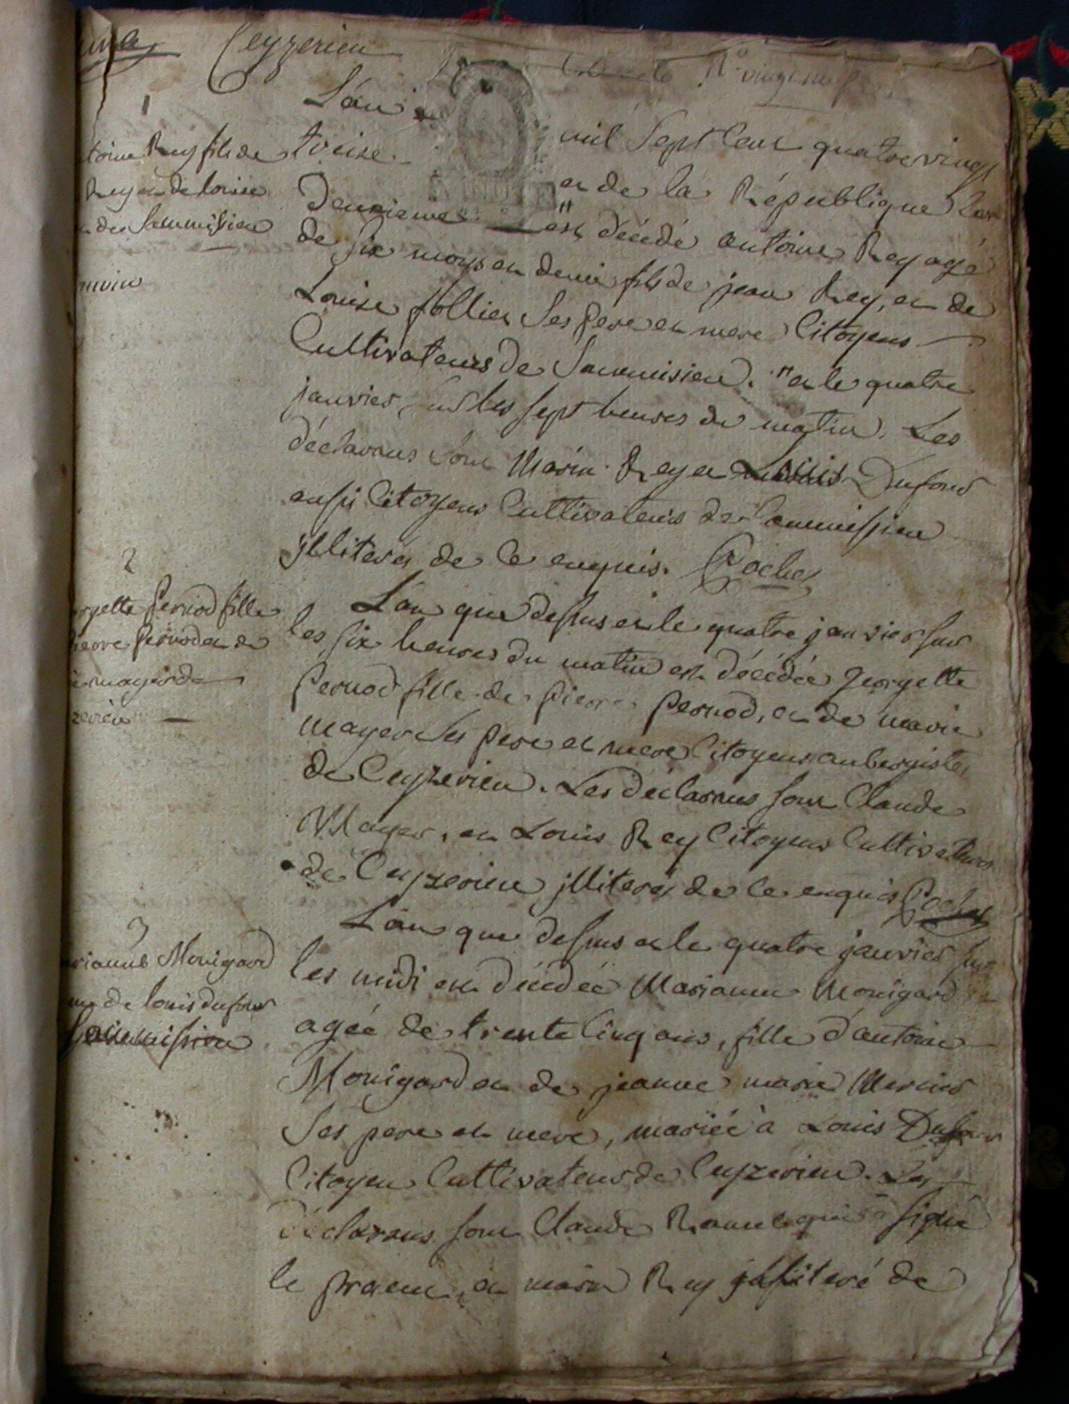 Ceyzerieu
1
L'an mil Sept Cent quatre vingt
toine Rey fils de
treize
Rey et de Louise
et de la République
deuxieme est décédé antoine Rey agé
de six moys et demi fils de jean Rey, et de
Louise follier Ses pere et mere Citoyens
Cultivateurs de Sammisieu. et le quatre
janvier, sur les sept heures du matin. Les
déclarans sont Marin Rey et Louis Dufour
aussi Citoyens Cultivateurs de Sammissieu
jlliterés de ce enquis. Rochet
2
rgette Pernod fille
ierre Pernod et de
L'an que dessus et le quatre janvier sur
les six heures du matin est décédée Georgette
Pernod fille de pierre Pernod, et de marie
mayer Ses pere et mere Citoyens aubergistes
de Ceyzerieu. Les déclarans sont Claude
Mayer, et Louis Rey Citoyens Cultivateurs
de Ceyzerieu jlliterés de ce enquis Rochet
3
rianne Monigard
me de louis dufour
Sammission
L'an que dessus et le quatre janvier sur
les midi est décédée Marianne Monigard
agée de trente Cinq ans, fille d'antoine
Monigard et de jeanne marie Mercier
Ses pere et mere, mariée à Louis Dufour
Citoyen Cultivateur de Ceyzerieu. Les
déclarans sont Claude Ramel qui a signé
le present, et marin Rey jllliteré de